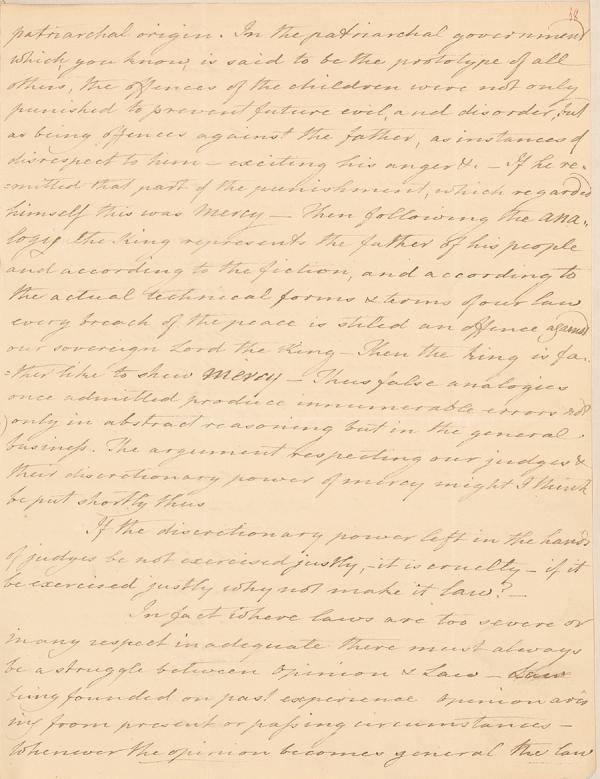 18
patriarchal origin. In the patriarchal government
which, you know, is said to be the prototype of all
others, the offences of the children were not only
punished to prevent future evil, and disorder, but
as being offences against the father, as instances of
disrespect to him – exciting his anger &c. – If he re-
=mitted that part of the punishment, which regarded
himself this was Mercy – Then following the ana-
logy the King represents the father of his people
and according to the fiction, and according to
the actual technical forms & terms of our law
every breach of the peace is stiled an offence against
our sovereign Lord the King – Then the King is fa-
=ther like to shew Mercy – Thus false analogies
once admitted produce innumerable errors not
only in abstract reasoning but in the general
business. The argument respecting our judges &
their discretionary power of mercy might I think
be put shortly thus
If the discretionary power left in the hands
of judges be not exercised justly, – it is cruelty – if it
be exercised justly why not make it law? –
In fact where laws are too severe or
in any respect inadequate there must always
be a struggle between Opinion & Law – Law
being founded on past experience opinion aris
ing from present or passing circumstances –
Whenever the opinion becomes general the law